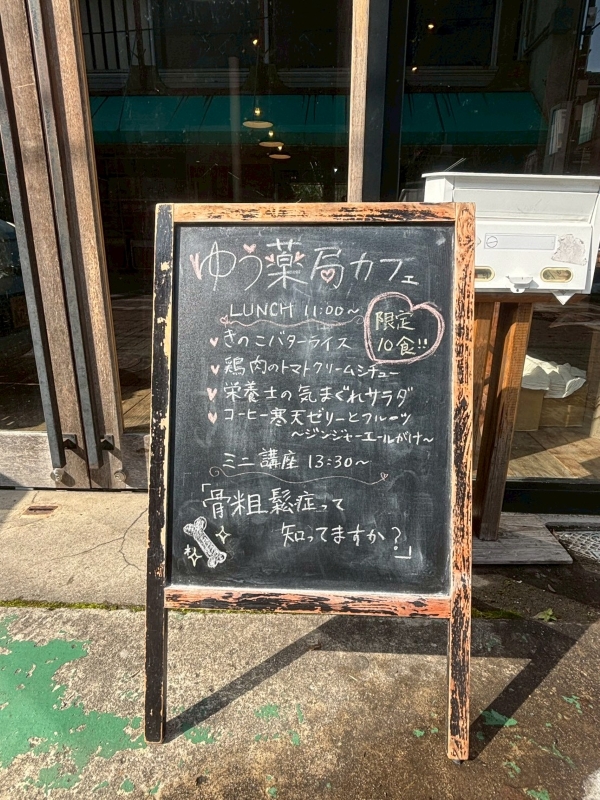 ゆう薬局カフェ
LUNCH 11:00〜
限定
10食!!
きのこバターライス
鶏肉のトマトクリームシチュー
栄養士の気まぐれサラダ
コーヒー寒天ゼリーとフルーツ
〜ジンジャーエールがけ〜
ミニ講座 13:30〜
「骨粗鬆症って
知ってますか?」